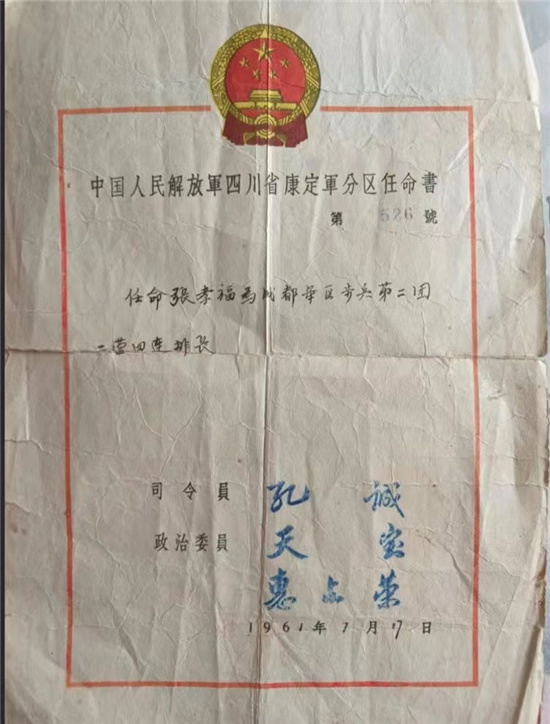 中国人民解放軍四川省康定軍分区任命書
第 526 號
任命張孝福爲成都军区步兵第二团
二营四连排长
司令員 孔 誠
政治委員 天 宝
惠占荣
1961年7月17日